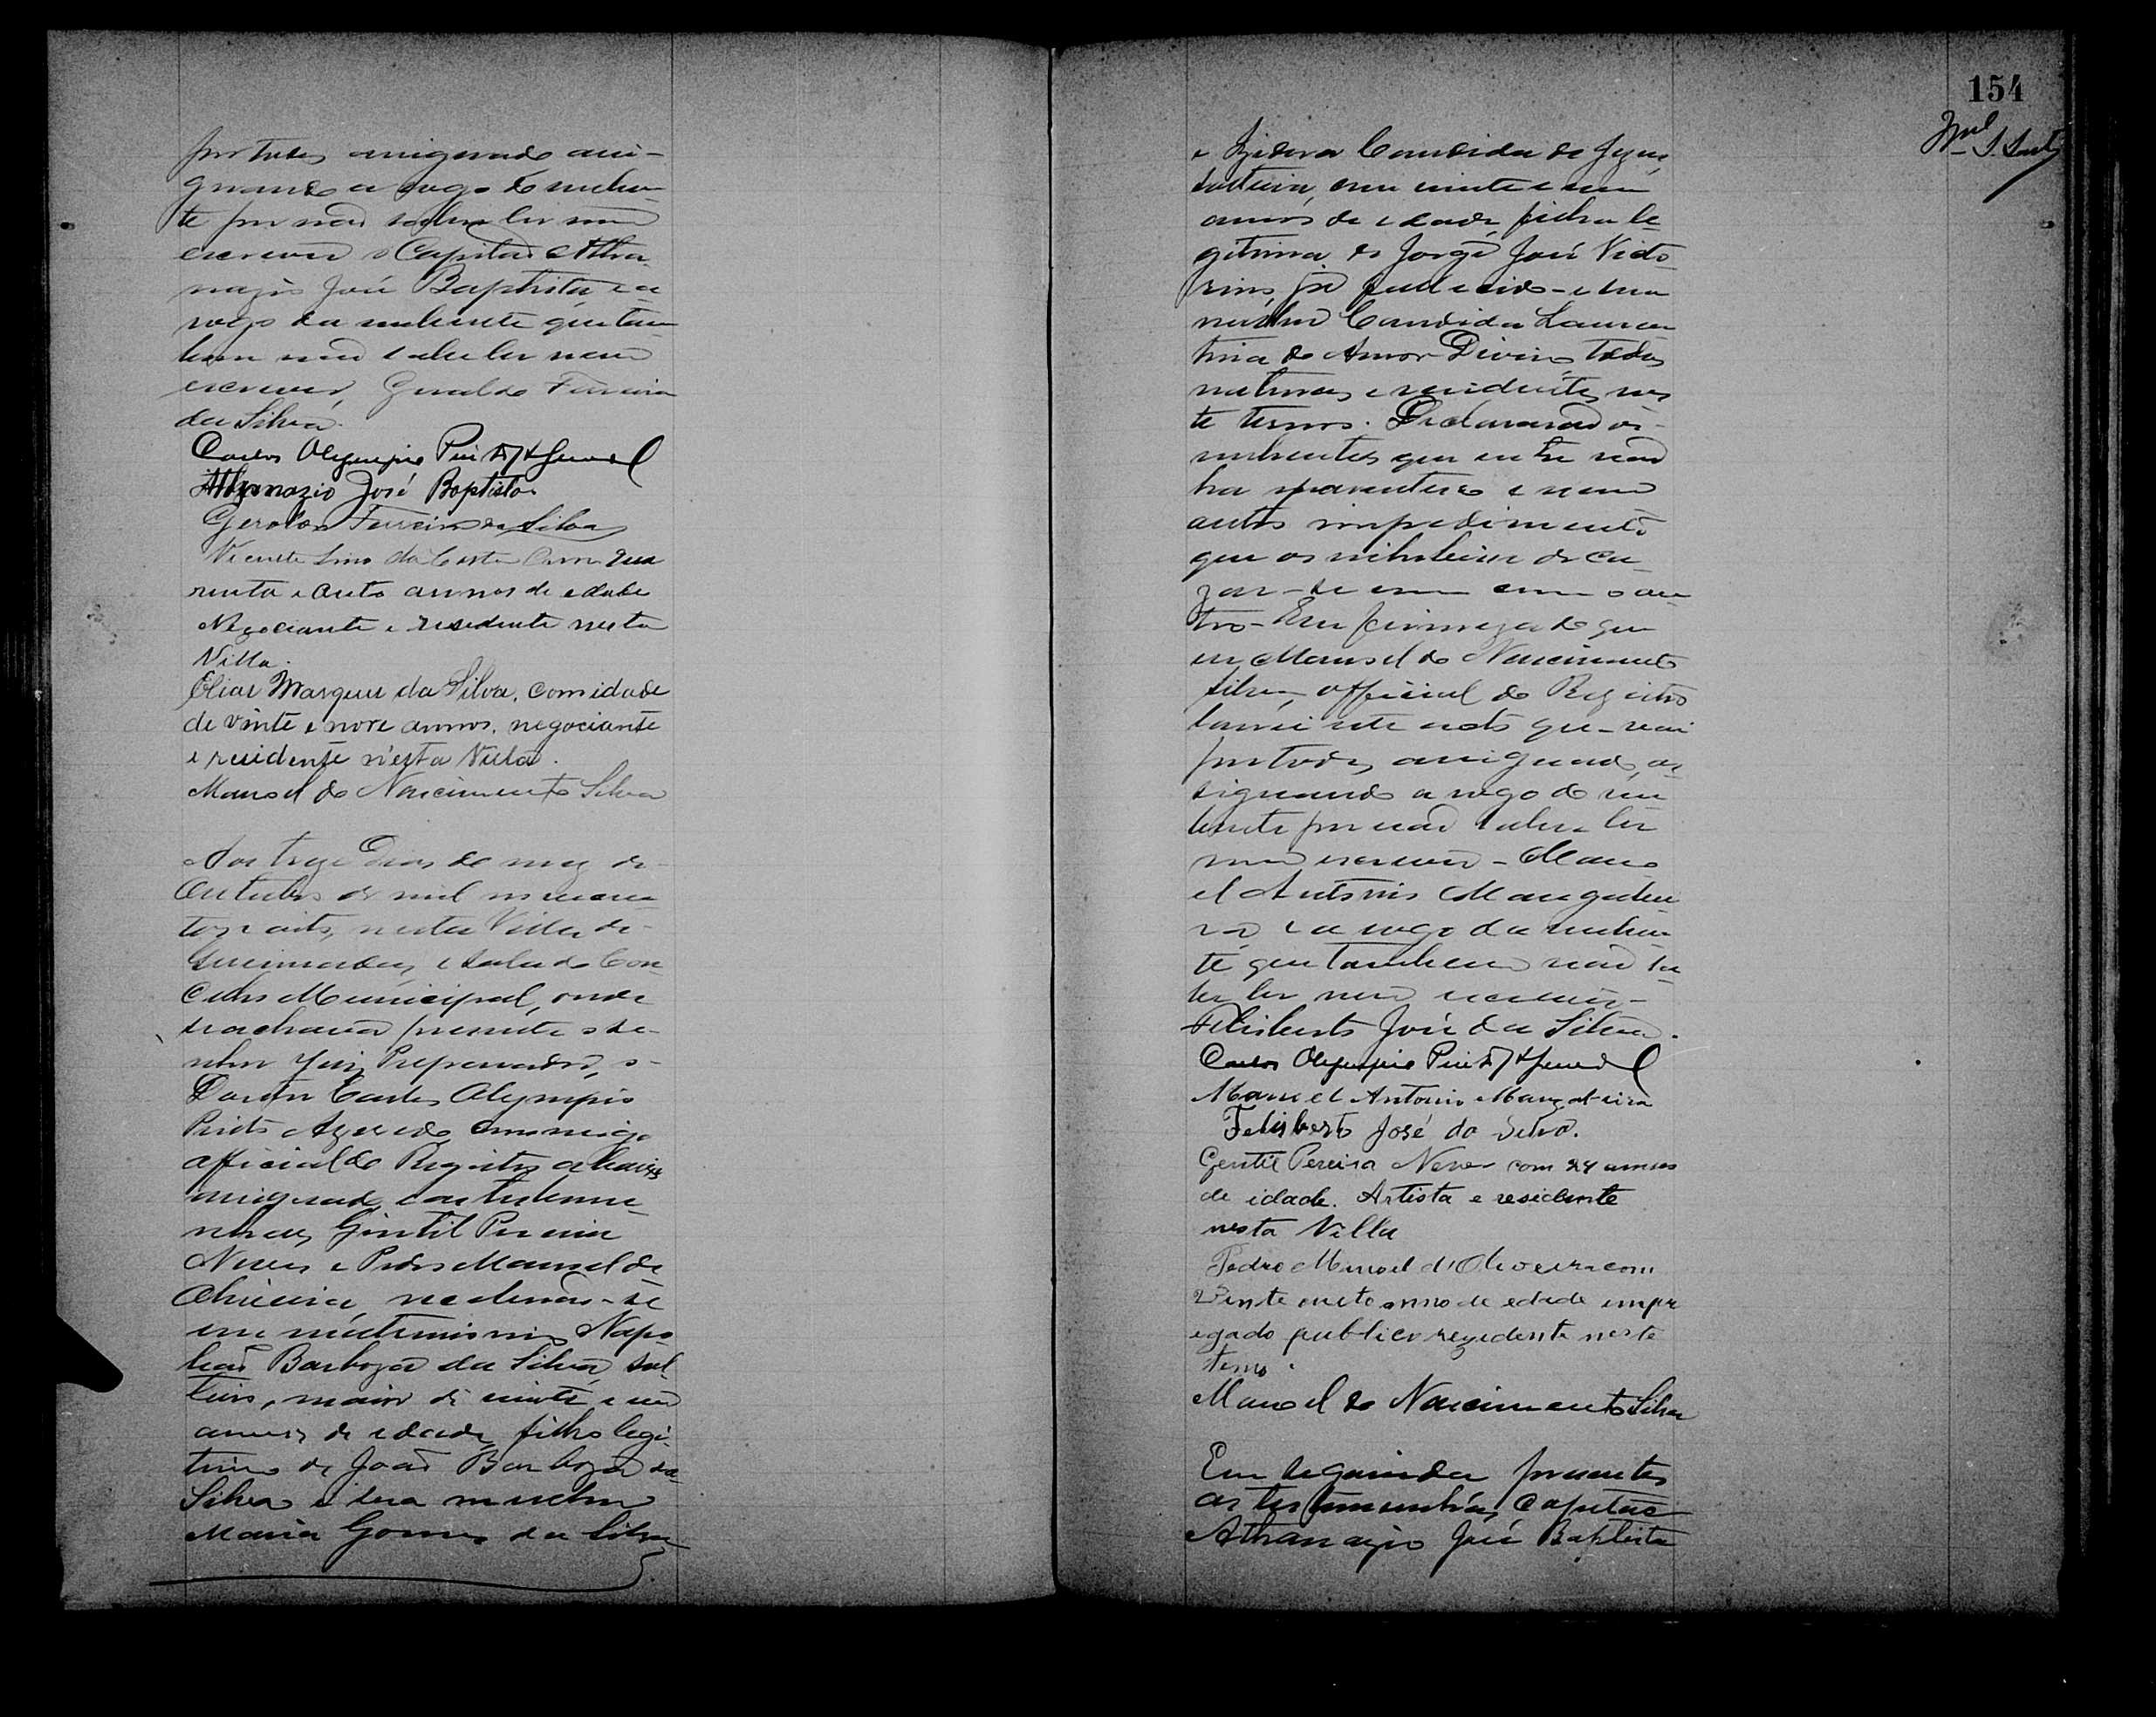 por todos assignado assi-
gnando a rogo do nuben-
te por não saber ler nem
escrever o Capitão Atha-
nazio José Baptista e a
rogo da nubente que tam
bem não sabe ler nem
escrever, Geraldo Ferreira
da Silva.
Carlos Olympio Pinto Azevedo
Athanazio José Baptista
Geraldo Ferreira da Silva
Vicente Lino da Costa com qua
renta e outo annos de edade
Negociante e residente nesta
Villa.
Elias Marques da Silva, com idade
de vinte e nove annos, negociante
e residente n'esta Villa.
Manoel do Nascimento Silva
Aos treze dias do mez de
Outubro de mil novecen-
tos e oito, nesta Villa de
Queimadas, e sala do Con-
celho Municipal, onde
se achava presente o se-
nhor Juiz Preparador, o
Doutor Carlos Olympio
Pinto Azevedo commigo
official do Registro abaixo
assignado, e as testemu-
nhas, Gentil Pereira
Neves e Pedro Manoel de
Oliveira, receberão-se
em matrimonio Napo
leão Barboza da Silva, sol-
teiro, maior de vinte e um
annos de edade, filho legi-
timo de João Barboza da
Silva e sua mulher
Maria Gomes da Silva
154
e Izidora Candida de Jezus,
solteira, com vinte e um
annos de edade, filha le-
gitima de Jorge José Victo-
rino, já fallecido - e sua
mulher Candida Lauren
tina do Amor Divino, todos
naturaes e residentes nes
te termo. Declararão os
nubentes que entre si não
ha parentesco e nem
outro impedimento
que os inhibisse de ca-
zar-se um com o ou
tro - Em firmeza do que
eu Manoel do Nascimento
Silva, official do Registro
lavrei este acto que vai
por todos assignado, as-
signando a rogo do nu
bente por não saber ler
nem escrever - Mano
el Antonio Mangabei
ra e a rogo da nuben-
te que tambem não sa
be ler nem escrever -
Felisberto José da Silva.
Carlos Olympio Pinto Azevedo
Manoel Antonio Mangabeira
Felisberto José da Silva.
Gentil Pereira Neves com 24 annos
de idade. Artista e residente
nesta Villa
Pedro Manoel d'Oliveira com
Vinte outo anno de edade empr
egado publico rezidente neste
termo.
Manoel do Nascimento Silva
Em seguida presentes
as testemunhas, Capitão
Athanazio José Baptista